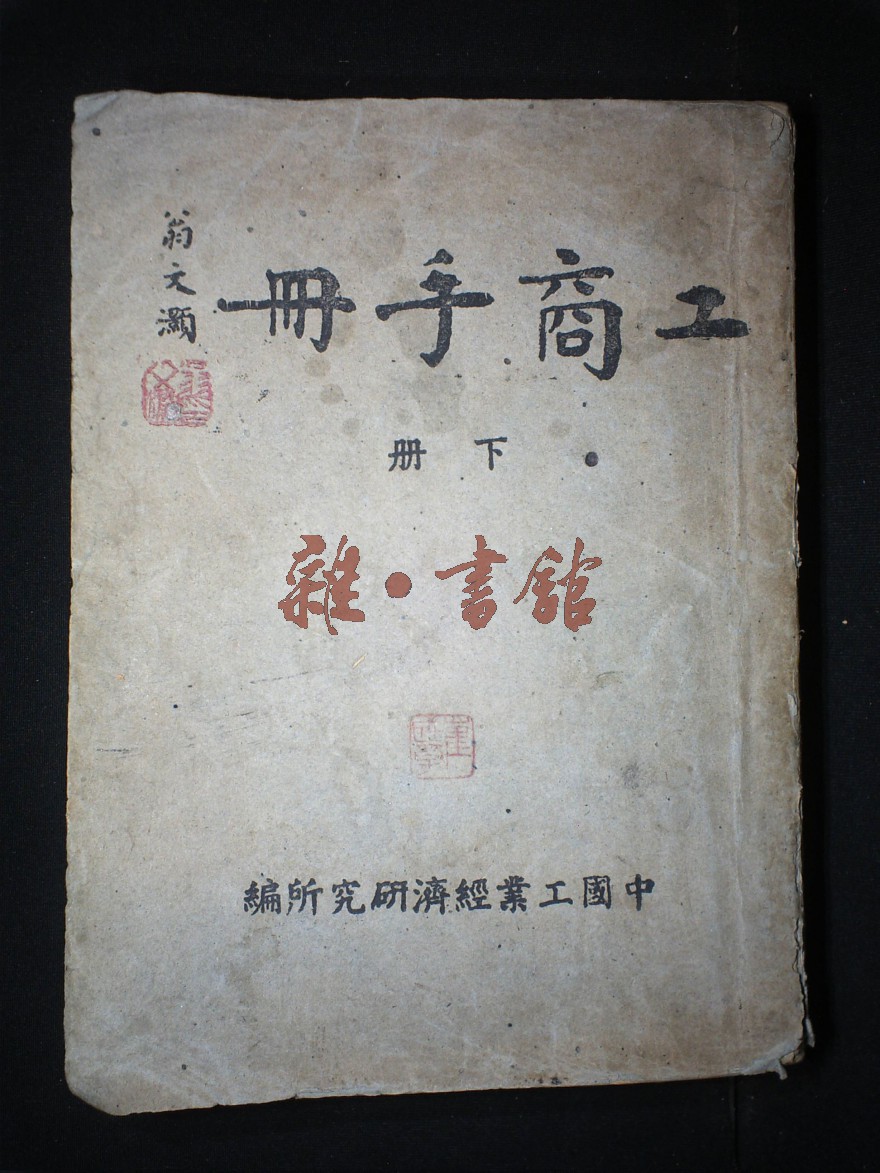 工商手冊
翁文灝
下册
雜•書館
中國工業經濟研究所編